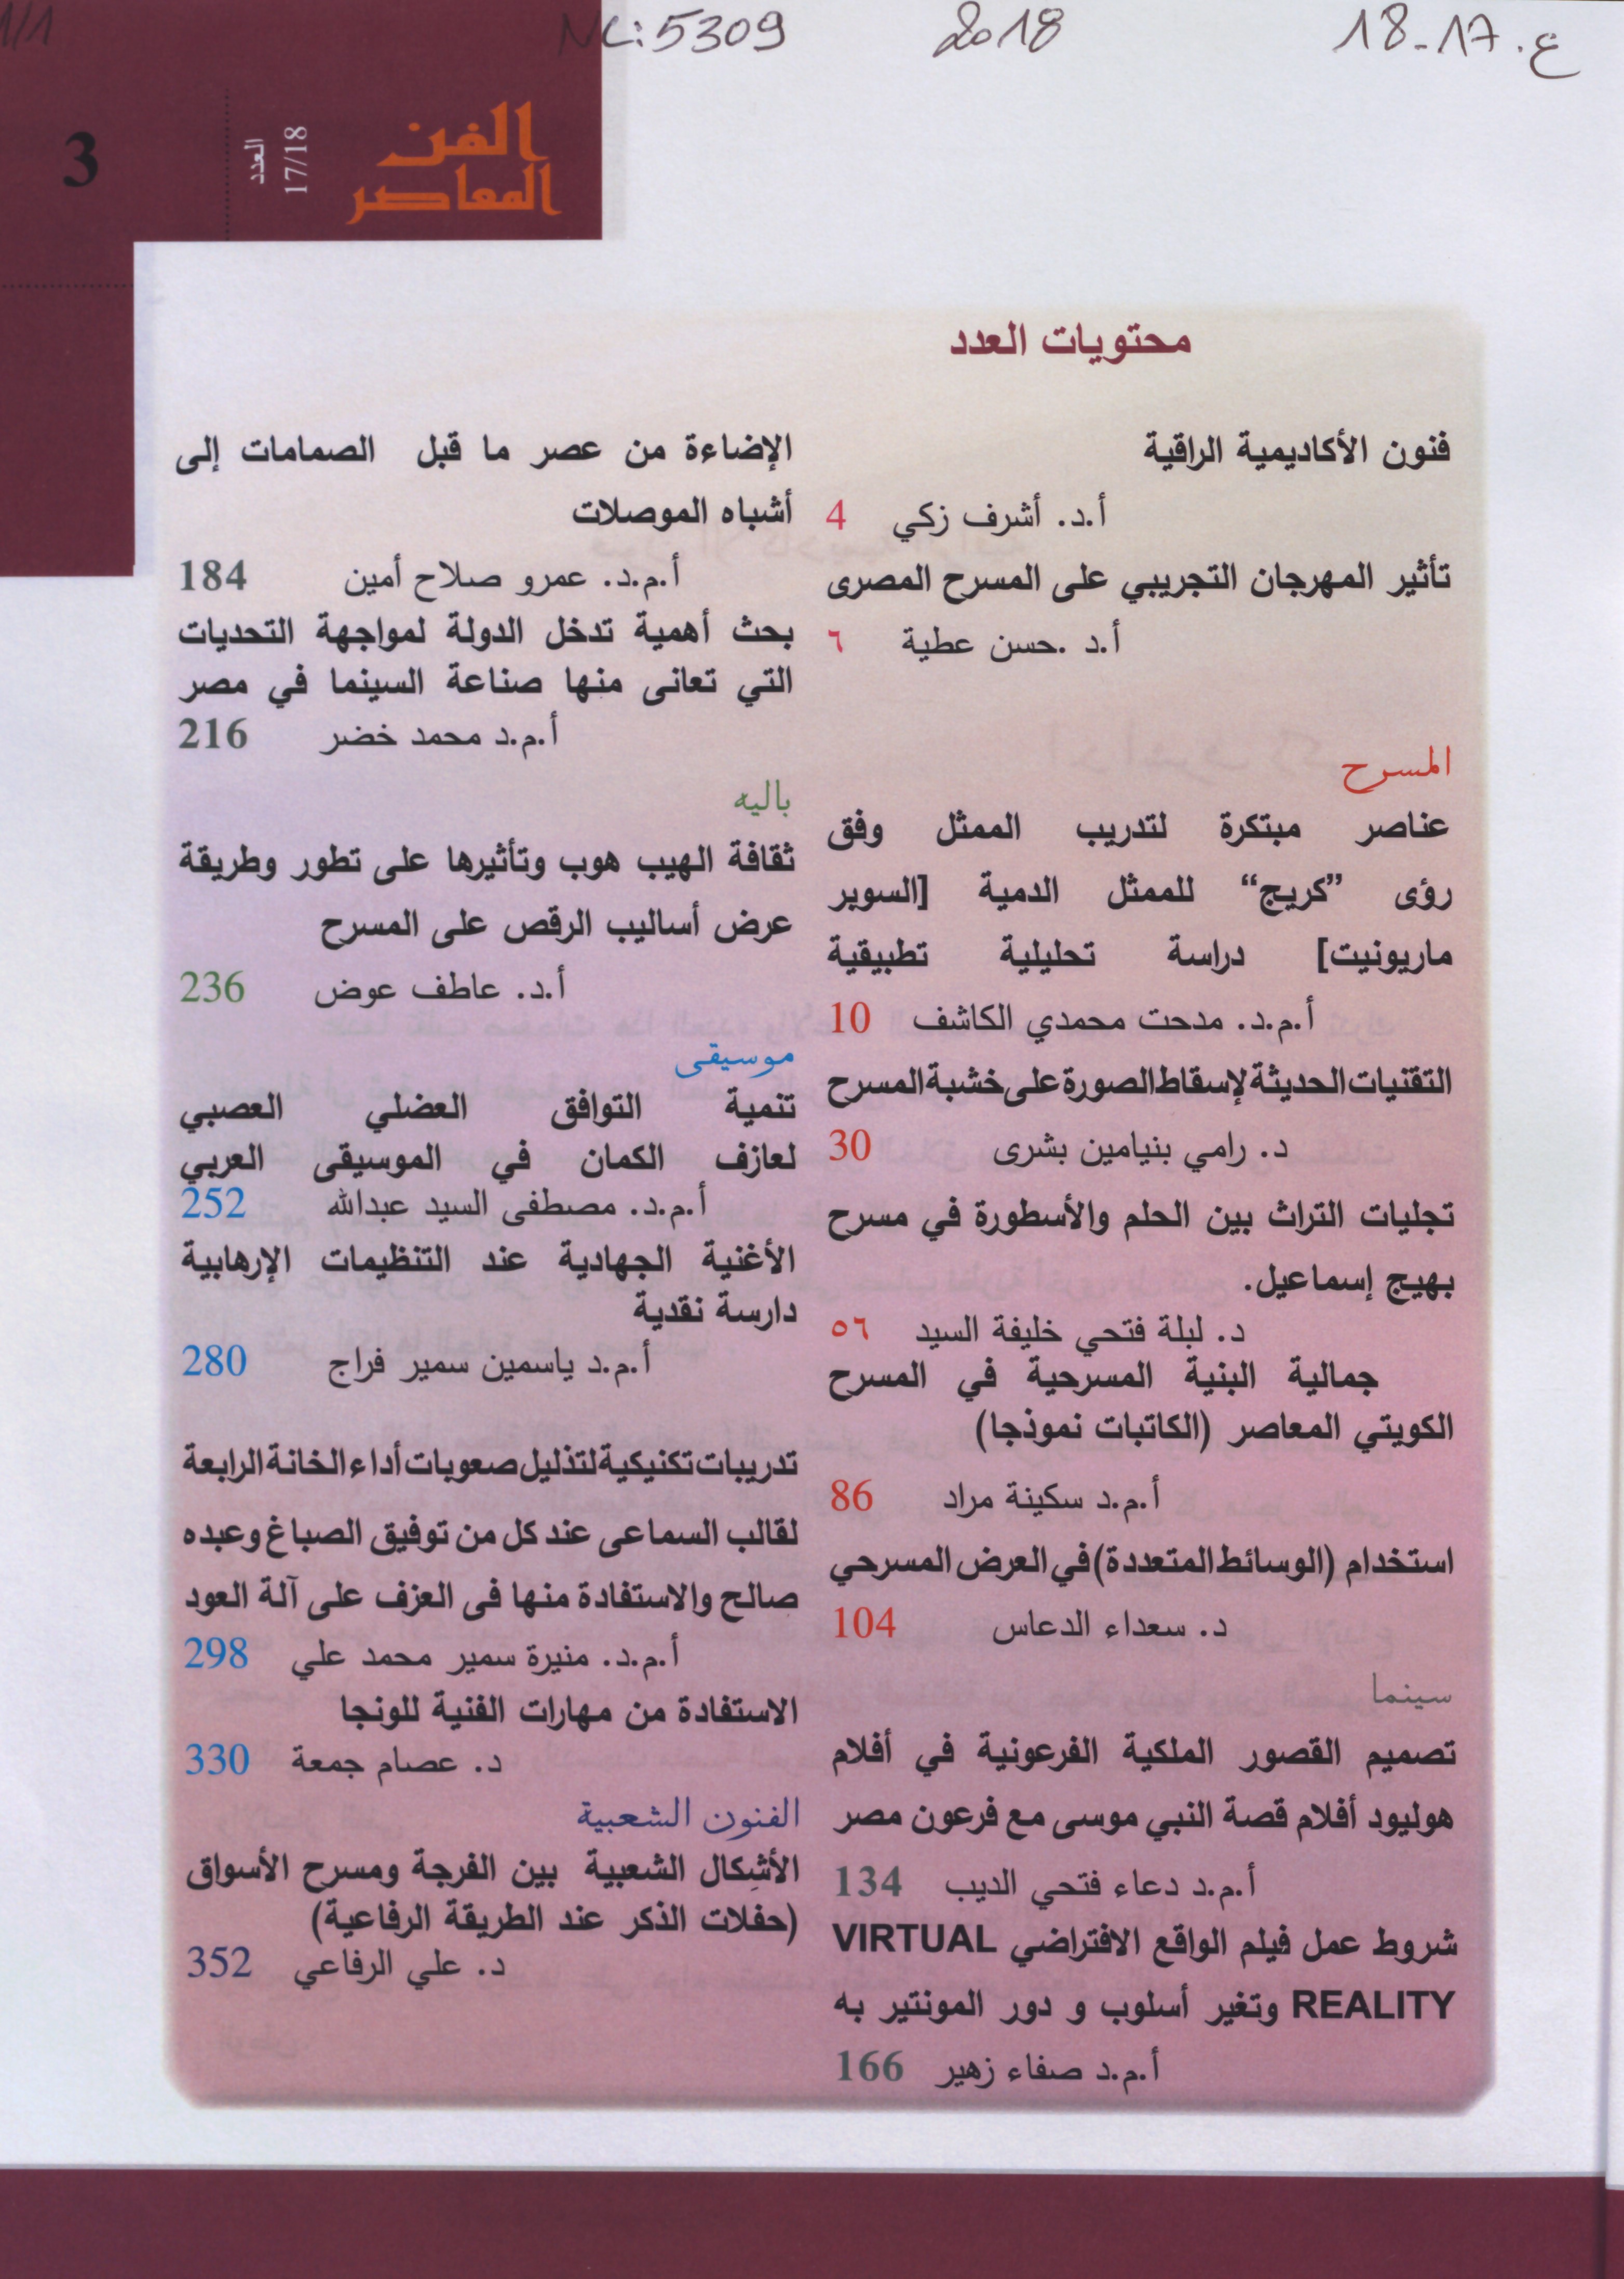 1/1
NC: 5309
2018
ع. 17-18
3
العدد
17/18
الفن
المعاصر
محتويات العدد
فنون الأكاديمية الراقية
أ.د. أشرف زكي 4
تأثير المهرجان التجريبي على المسرح المصرى
أ.د .حسن عطية ٦
المسرح
عناصر مبتكرة لتدريب الممثل وفق
رؤى ”كريج“ للممثل الدمية [السوبر
ماريونيت] دراسة تحليلية تطبيقية
أ.م.د. مدحت محمدي الكاشف 10
التقنيات الحديثة لإسقاط الصورة على خشبة المسرح
د. رامي بنيامين بشرى 30
تجليات التراث بين الحلم والأسطورة في مسرح
بهيج إسماعيل.
د. لبلة فتحي خليفة السيد ٥٦
جمالية البنية المسرحية في المسرح
الكويتي المعاصر (الكاتبات نموذجا)
أ.م.د سكينة مراد 86
استخدام (الوسائط المتعددة) في العرض المسرحي
د. سعداء الدعاس 104
سينما
تصميم القصور الملكية الفرعونية في أفلام
هوليود أفلام قصة النبي موسى مع فرعون مصر
أ.م.د دعاء فتحي الديب 134
شروط عمل فيلم الواقع الافتراضي VIRTUAL
REALITY وتغير أسلوب و دور المونتير به
أ.م.د صفاء زهير 166
الإضاءة من عصر ما قبل الصمامات إلى
أشباه الموصلات
أ.م.د. عمرو صلاح أمين 184
بحث أهمية تدخل الدولة لمواجهة التحديات
التي تعانى منها صناعة السينما في مصر
أ.م.د محمد خضر 216
باليه
ثقافة الهيب هوب وتأثيرها على تطور وطريقة
عرض أساليب الرقص على المسرح
أ.د. عاطف عوض 236
موسيقى
تنمية التوافق العضلي العصبي
لعازف الكمان في الموسيقى العربي
أ.م.د. مصطفى السيد عبدالله 252
الأغنية الجهادية عند التنظيمات الإرهابية
دارسة نقدية
أ.م.د ياسمين سمير فراج 280
تدريبات تكنيكية لتذليل صعوبات أداء الخانة الرابعة
لقالب السماعى عند كل من توفيق الصباغ وعبده
صالح والاستفادة منها فى العزف على آلة العود
أ.م.د. منيرة سمير محمد علي 298
الاستفادة من مهارات الفنية للونجا
د. عصام جمعة 330
الفنون الشعبية
الأشكال الشعبية بين الفرجة ومسرح الأسواق
(حفلات الذكر عند الطريقة الرفاعية)
د. علي الرفاعي 352